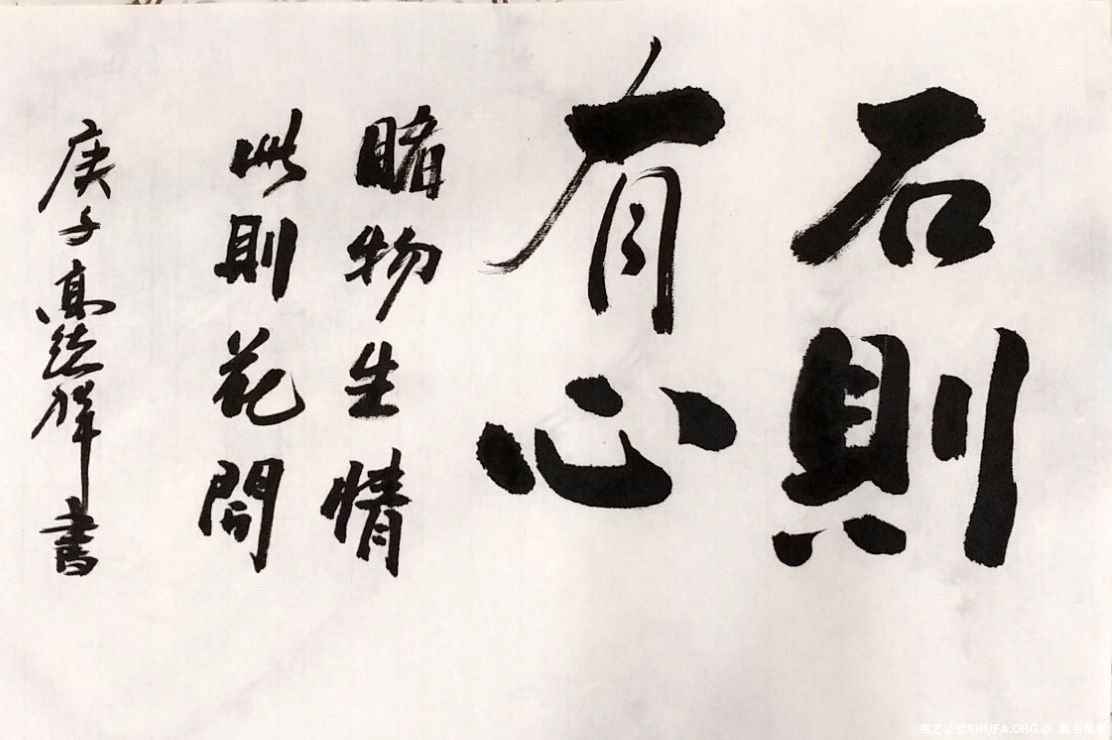 石則
有心
睹物生情
此則花開
庚子高德祥書
书艺公社SHUFA.ORG@